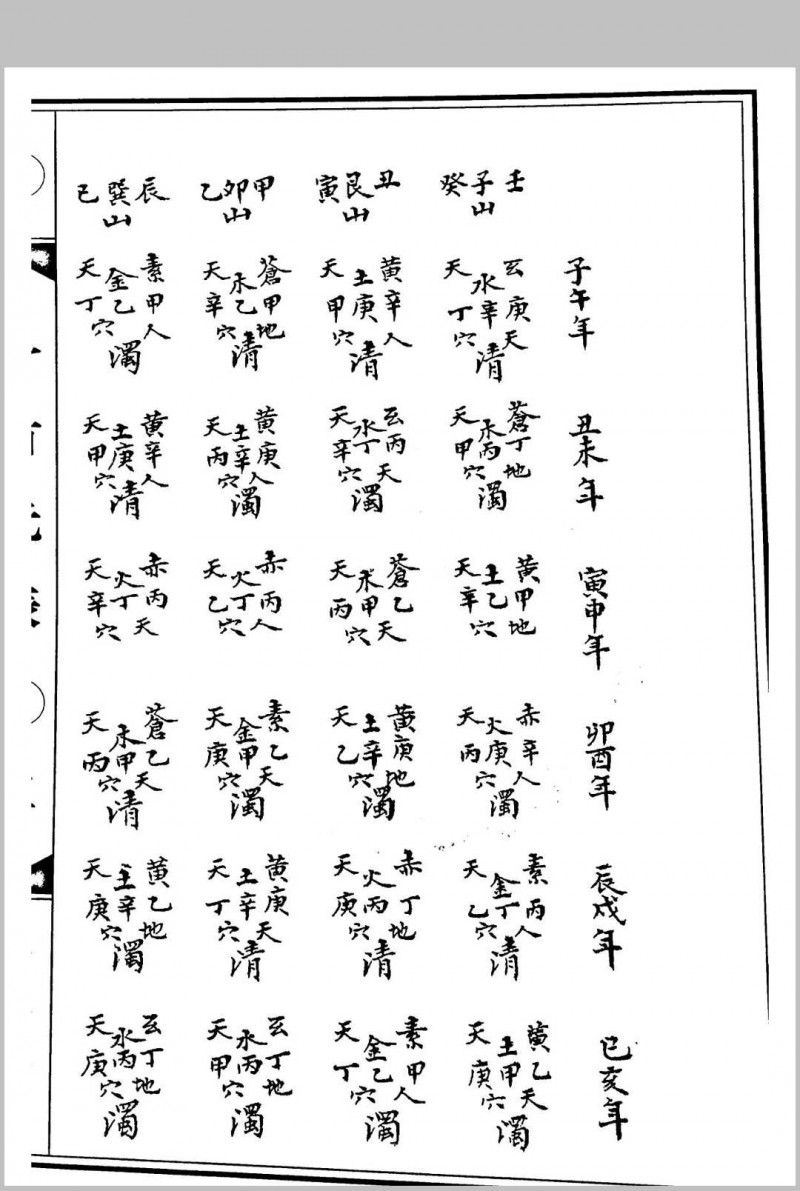 子午年
丑未年
寅申年
卯酉年
辰戌年
巳亥年
壬子癸山
玄庚天水辛天丁穴清
蒼丁地木丙天甲穴濁
黃甲地土乙天辛穴
赤辛人火庚天丙穴濁
素丙人金丁天乙穴清
黃乙天土甲天庚穴濁
丑艮寅山
黃辛人土庚天甲穴清
玄丙天水丁天辛穴濁
蒼乙天木甲天丙穴
黃庚地土辛天乙穴濁
赤丁地火丙天庚穴清
素甲人金乙天丁穴濁
甲卯乙山
蒼甲地木乙天辛穴清
黃庚人土辛天丙穴濁
赤丙人火丁天乙穴
素乙天金甲天庚穴濁
黃庚天土辛天丁穴清
玄丁地水丙天甲穴濁
辰巽巳山
素甲人金乙天丁穴濁
黃辛人土庚天甲穴清
赤丙天火丁天辛穴
蒼乙天木甲天丙穴清
黃乙地土辛天庚穴濁
玄丁地水丙天庚穴濁